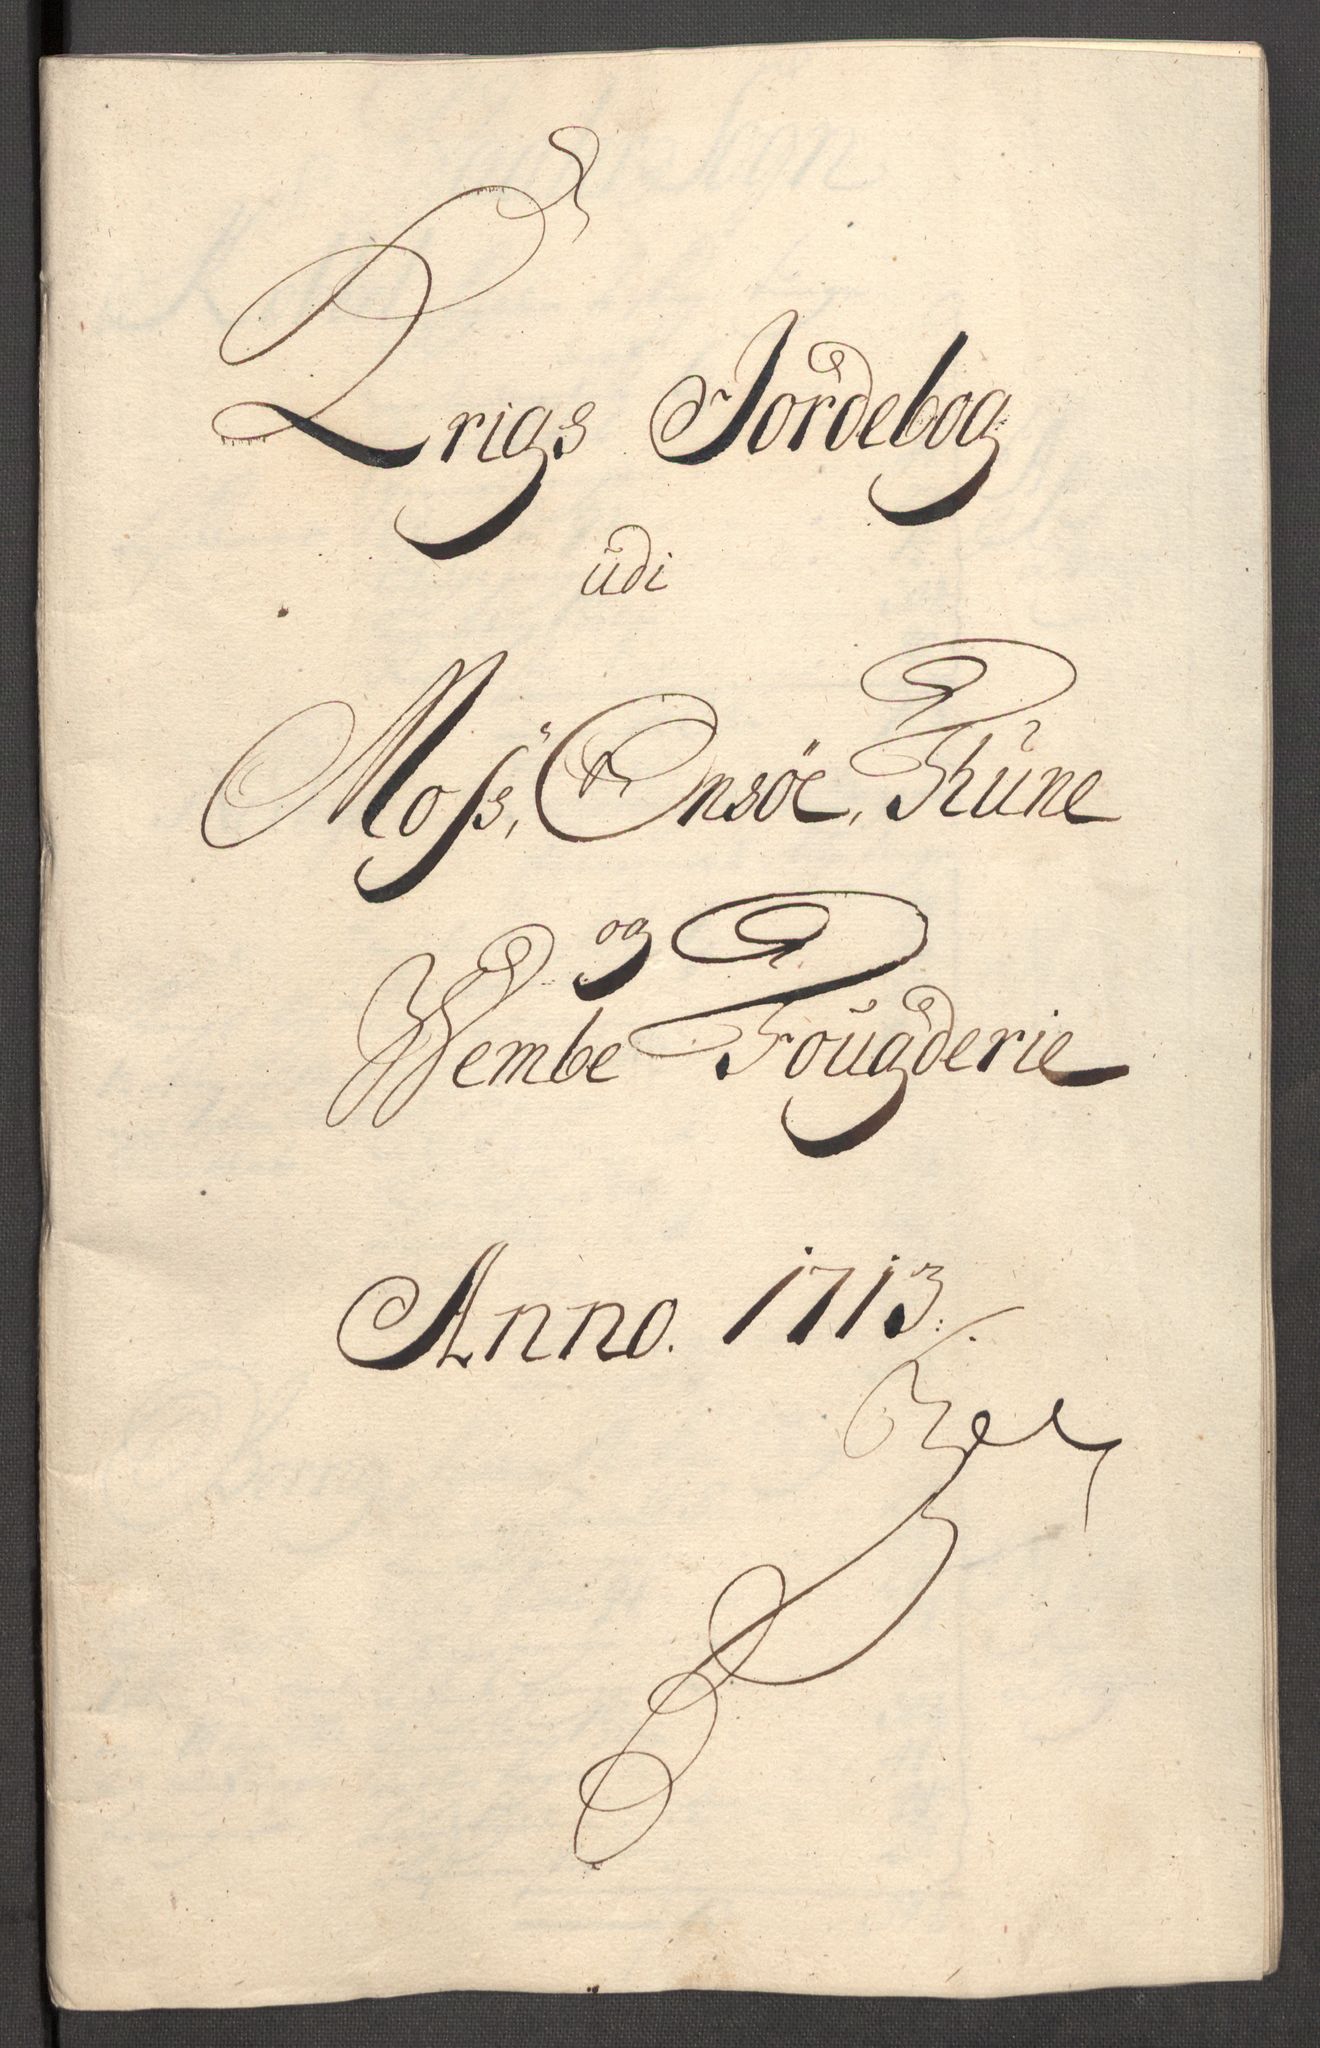 Krigs Jordebog
udi
Moss, Onsöe, Thune
og
Wembe Fougderie
Anno. 1713.